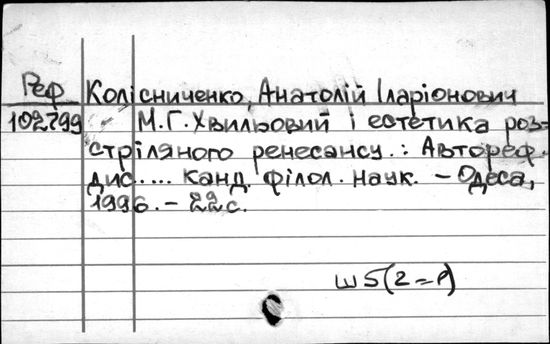 Реф Колісниченко, Анатолій Іларіонович
102799 М.Г.Хвильовий і естетика роз-
стріляного ренесансу. : Автореф.
дис..... канд. філол. наук. – Одеса,
1996. – 22с.
Ш5(2=Р)